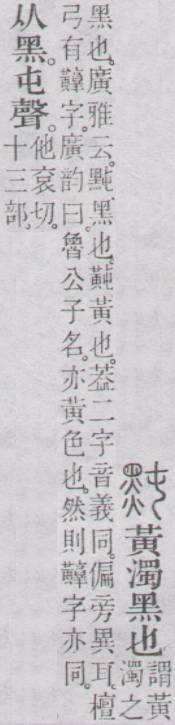 黃濁黑也謂黃濁之
黑也。廣雅云。黗、黑也。𪏆、黃也。葢二字音義同。偏旁異耳。檀
弓有䵍字。廣韵曰。魯公子名。亦黃色也。然則䵍字亦同。
从黑。屯聲。他衮切。十三部。